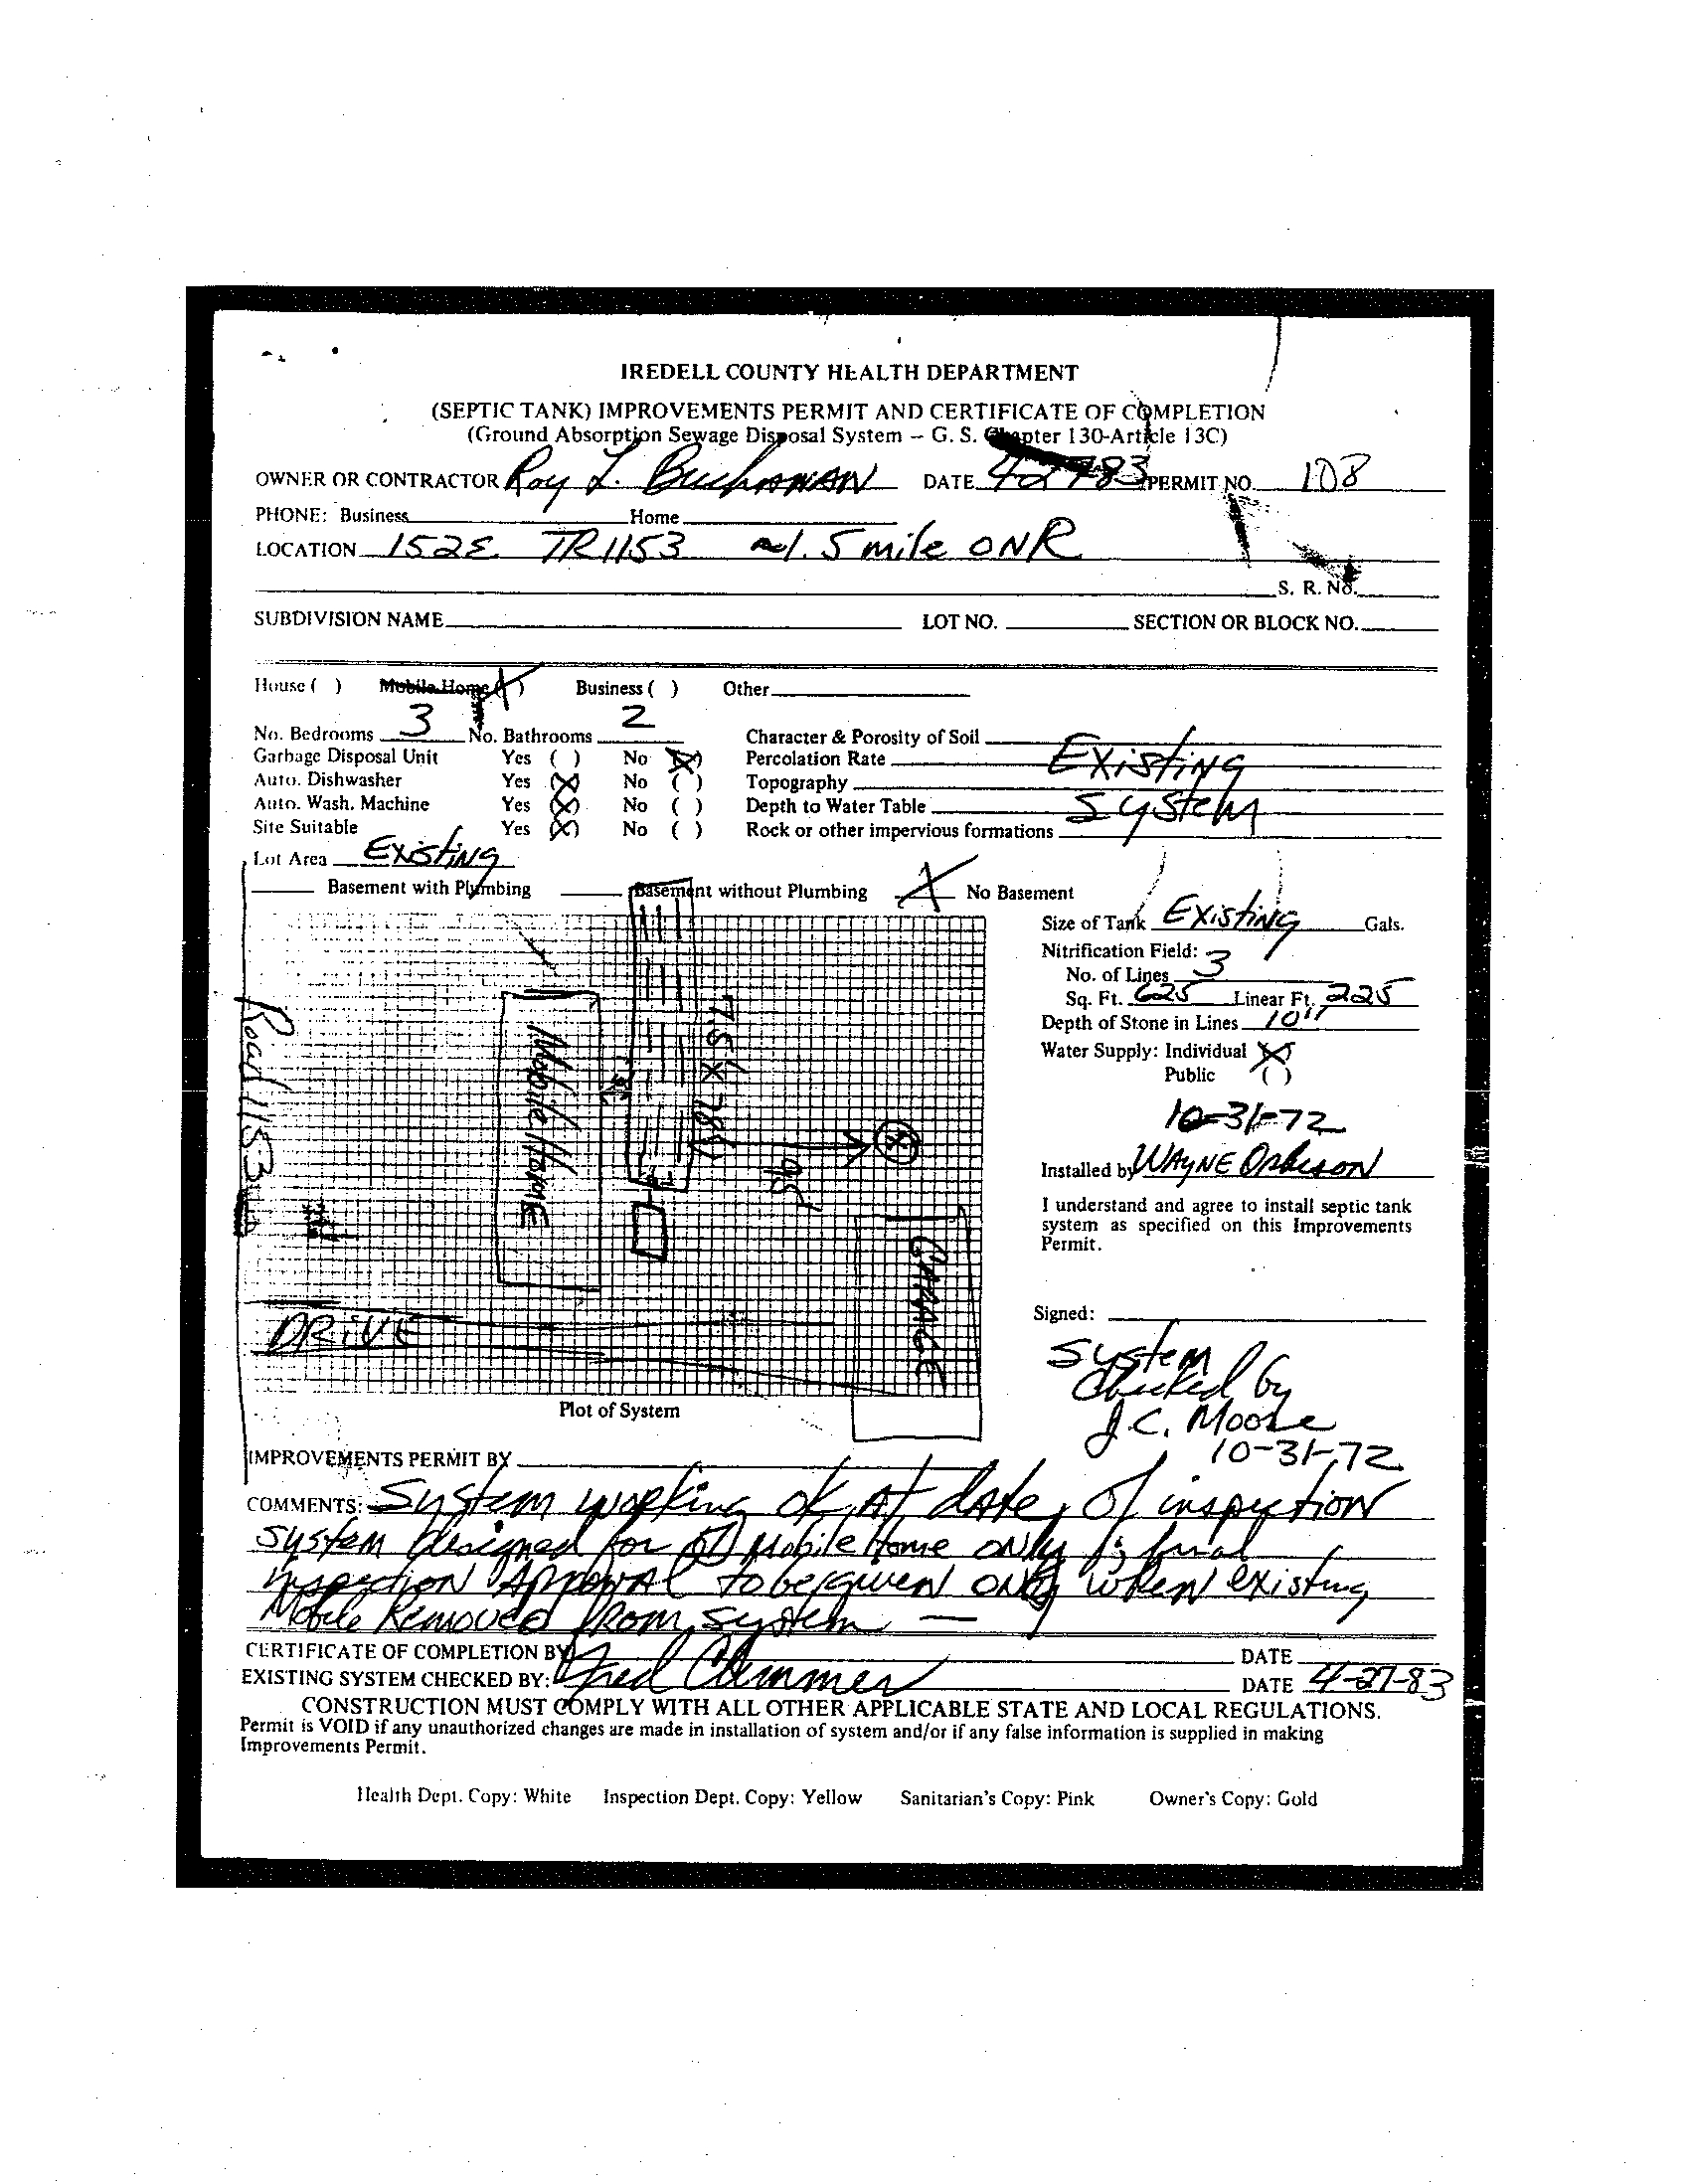 IREDELL COUNTY HEALTH DEPARTMENT
(SEPTIC TANK) IMPROVEMENTS PERMIT AND CERTIFICATE OF COMPLETION
(Ground Absorption Sewage Disposal System – G. S. Chapter 130-Article 13C)
OWNER OR CONTRACTOR Roy L. Buchanan DATE 4-27-83 PERMIT NO. 108
PHONE: Business Home
LOCATION 152E TR1153 ≈1.5 mile ON R
S. R. No.
SUBDIVISION NAME LOT NO. SECTION OR BLOCK NO.
House ( ) Mobile Home (X) Business ( ) Other
No. Bedrooms 3 No. Bathrooms 2 Character & Porosity of Soil
Garbage Disposal Unit Yes ( ) No (X) Percolation Rate Existing
Auto. Dishwasher Yes (X) No ( ) Topography
Auto. Wash. Machine Yes (X) No ( ) Depth to Water Table System
Site Suitable Yes (X) No ( ) Rock or other impervious formations
Lot Area Existing
Basement with Plumbing Basement without Plumbing X No Basement
Size of Tank Existing Gals.
Nitrification Field:
No. of Lines 3
Sq. Ft. 625 Linear Ft. 225
Depth of Stone in Lines 10"
Water Supply: Individual (X)
Public ( )
10-31-72
Installed by WAYNE Orbison
I understand and agree to install septic tank
system as specified on this Improvements
Permit.
Signed:
System
Checked by
J.C. Moore
10-31-72
Road 1153
Mobile Home
95
GARAGE
DRIVE
Plot of System
IMPROVEMENTS PERMIT BY
COMMENTS: System working ok At date of inspection
System designed for Mobile Home ONly final
inspection Approval to be given ONly when existing
Mobile Removed from system —
CERTIFICATE OF COMPLETION BY DATE
EXISTING SYSTEM CHECKED BY: Fred Clemmer DATE 4-27-83
CONSTRUCTION MUST COMPLY WITH ALL OTHER APPLICABLE STATE AND LOCAL REGULATIONS.
Permit is VOID if any unauthorized changes are made in installation of system and/or if any false information is supplied in making
Improvements Permit.
Health Dept. Copy: White Inspection Dept. Copy: Yellow Sanitarian's Copy: Pink Owner's Copy: Gold